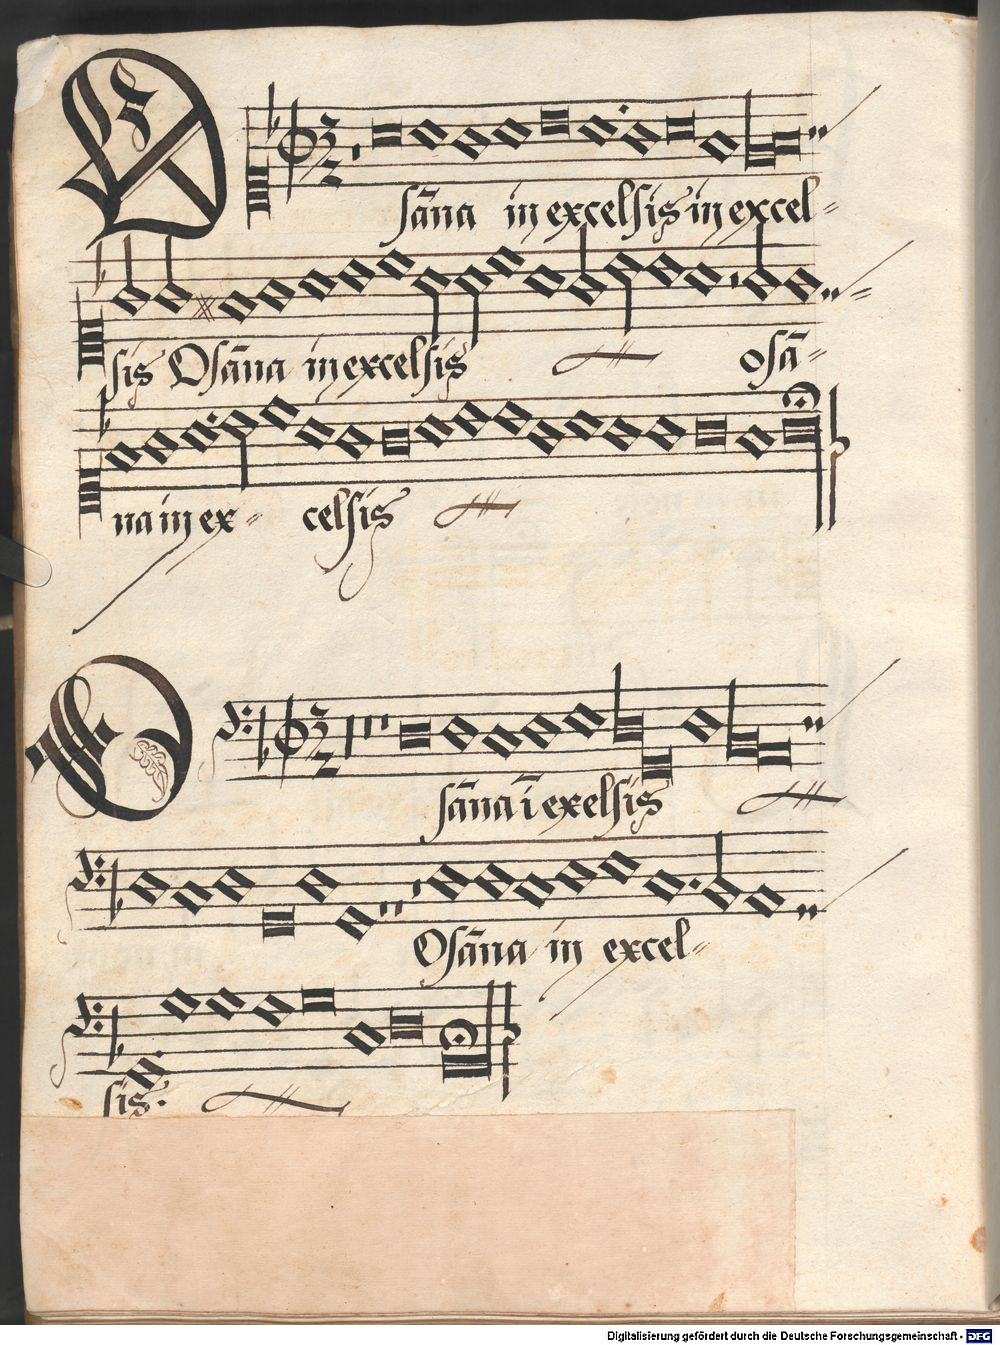 O
sāna in excelsis in excel=
sis Osāna in excelsis osā=
na in ex= celsis
O
sāna ī exelsis
Osāna in excel=
sis.
Digitalisierung gefördert durch die Deutsche Forschungsgemeinschaft - DFG